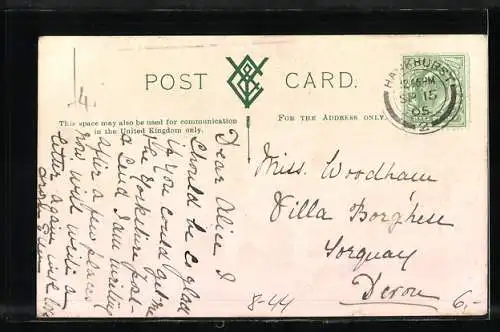 POST CARD.
This space may also be used for communication
in the United Kingdom only.
FOR THE ADDRESS ONLY.
HAWKHURST
2.45PM
SP 15
05
2
14.
Dear Alice I
should be so glad
if you could get me
the Yorkshire post-
card I am wanting
after a few places
now will write a
letter again with love
from
Miss. Woodham
Villa Borghese
Torquay
Devon
8-44
6,-